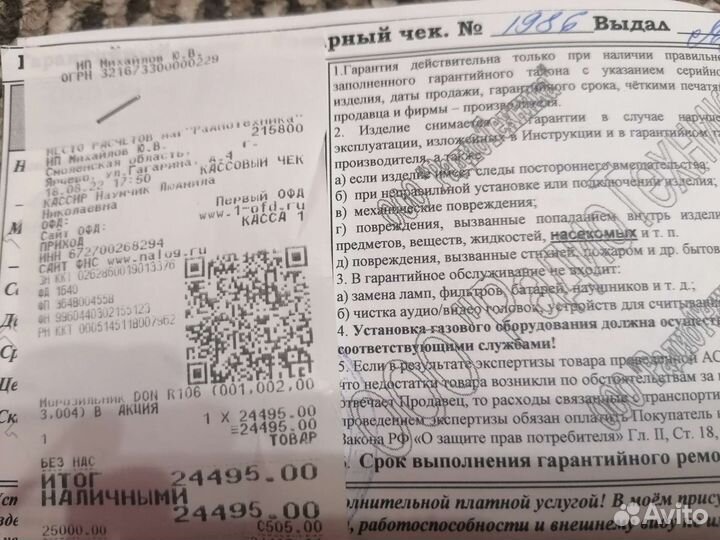 ИП Михайлов Ю.В.
ОГРН 321673300000229
МЕСТО РАСЧЕТОВ маг "Радиотехника"
215800
ИП Михайлов Ю.В.
Смоленская область, г.
Ярцево, ул.Гагарина, д.4
18.08.22 17:50 КАССОВЫЙ ЧЕК
КАССИР Наумчик Людмила
Николаевна
ОФД: Первый ОФД
Сайт ОФД: www.1-ofd.ru
ПРИХОД КАССА 1
ИНН 672700268294
САЙТ ФНС www.nalog.ru
ЗН ККТ 0262860019013376
ФД 1640
ФП 3648004558
ФН 9960440302155123
РН ККТ 0005145118007962
Морозильник DON R106 (001,002,00
3,004) B АКЦИЯ
1 X 24495.00
=24495.00
1 ТОВАР
БЕЗ НДС
ИТОГ 24495.00
НАЛИЧНЫМИ
24495.00
25000.00 С505.00
арный чек. № 1986 Выдал
1.Гарантия действительна только при наличии правильно
заполненного гарантийного талона с указанием серийно
изделия, даты продажи, гарантийного срока, чёткими печатя
продавца и фирмы – производителя.
2. Изделие снимается с гарантии в случае наруше
эксплуатации, изложенных в Инструкции и в гарантийном т
производителя, а также
а) если изделие имеет следы постороннего вмешательства;
б) при неправильной установке или подключении изделия;
в) механические повреждения;
г) повреждения, вызванные попаданием внутрь издели
предметов, веществ, жидкостей, насекомых и т. п.
д) повреждения, вызванные стихией, пожаром и др. бытов
3. В гарантийное обслуживание не входит:
а) замена ламп, фильтров, батарей, наушников и т. д.;
б) чистка аудио/видео головок, устройств для считывани
4. Установка газового оборудования должна осущест
соответствующими службами!
5. Если в результате экспертизы товара проведённой АС
что недостатки товара возникли по обстоятельствам за
отвечает Продавец, то расходы связанные с транспорти
проведением экспертизы обязан оплатить Покупатель
Закона РФ «О защите прав потребителя» Гл. II, Ст. 18,
Срок выполнения гарантийного ремо
лнительной платной услугой! В моём прису
, работоспособности и внешнему виду не и
Avito